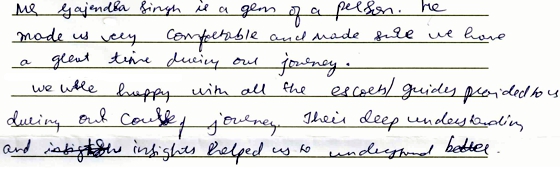 Mr Gajendra Singh is a gem of a person. He
made us very comfortable and made sure we have
a great time during our journey.
we were happy with all the escorts/guides provided to us
during our journey. Their deep understanding
and insights helped us to understand better.